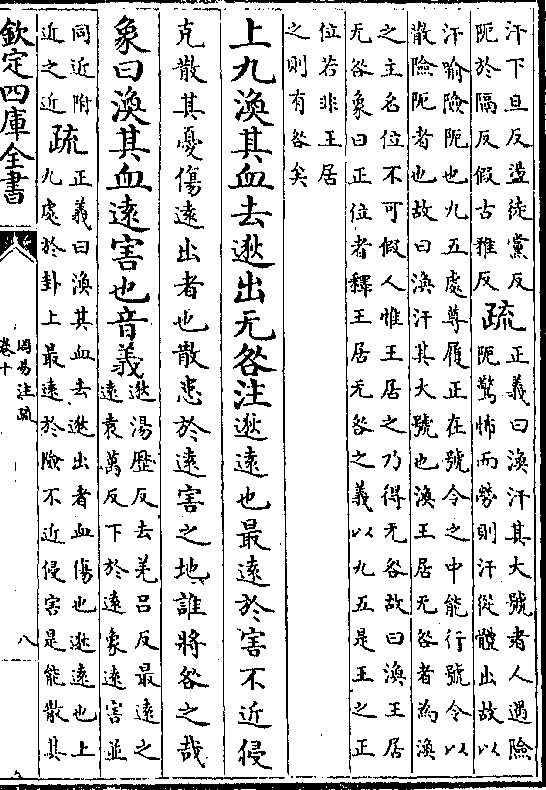 汗下旦反盪徒黨反
阨於隔反假古雅反
疏
正義曰渙汗其大號者人遇險
阨驚怖而勞則汗從體出故以
汗喻險阨也九五處尊履正在號令之中能行號令以
散險阨者也故曰渙汗其大號也渙王居无咎者為渙
之主名位不可假人惟王居之乃得无咎故曰渙王居
无咎象曰正位者釋王居无咎之義以九五是王之正
位若非王居
之則有咎矣
上九渙其血去逖出无咎注逖遠也最遠於害不近侵
克散其憂傷遠出者也散患於遠害之地誰將咎之哉
象曰渙其血遠害也音義
逖湯歷反去羌呂反最遠之
遠袁萬反下於遠象遠害並
同近附
近之近
疏
正義曰渙其血去逖出者血傷也逖遠也上
九處於卦上最遠於險不近侵害是能散其
欽定四庫全書
周易注疏
卷十
八